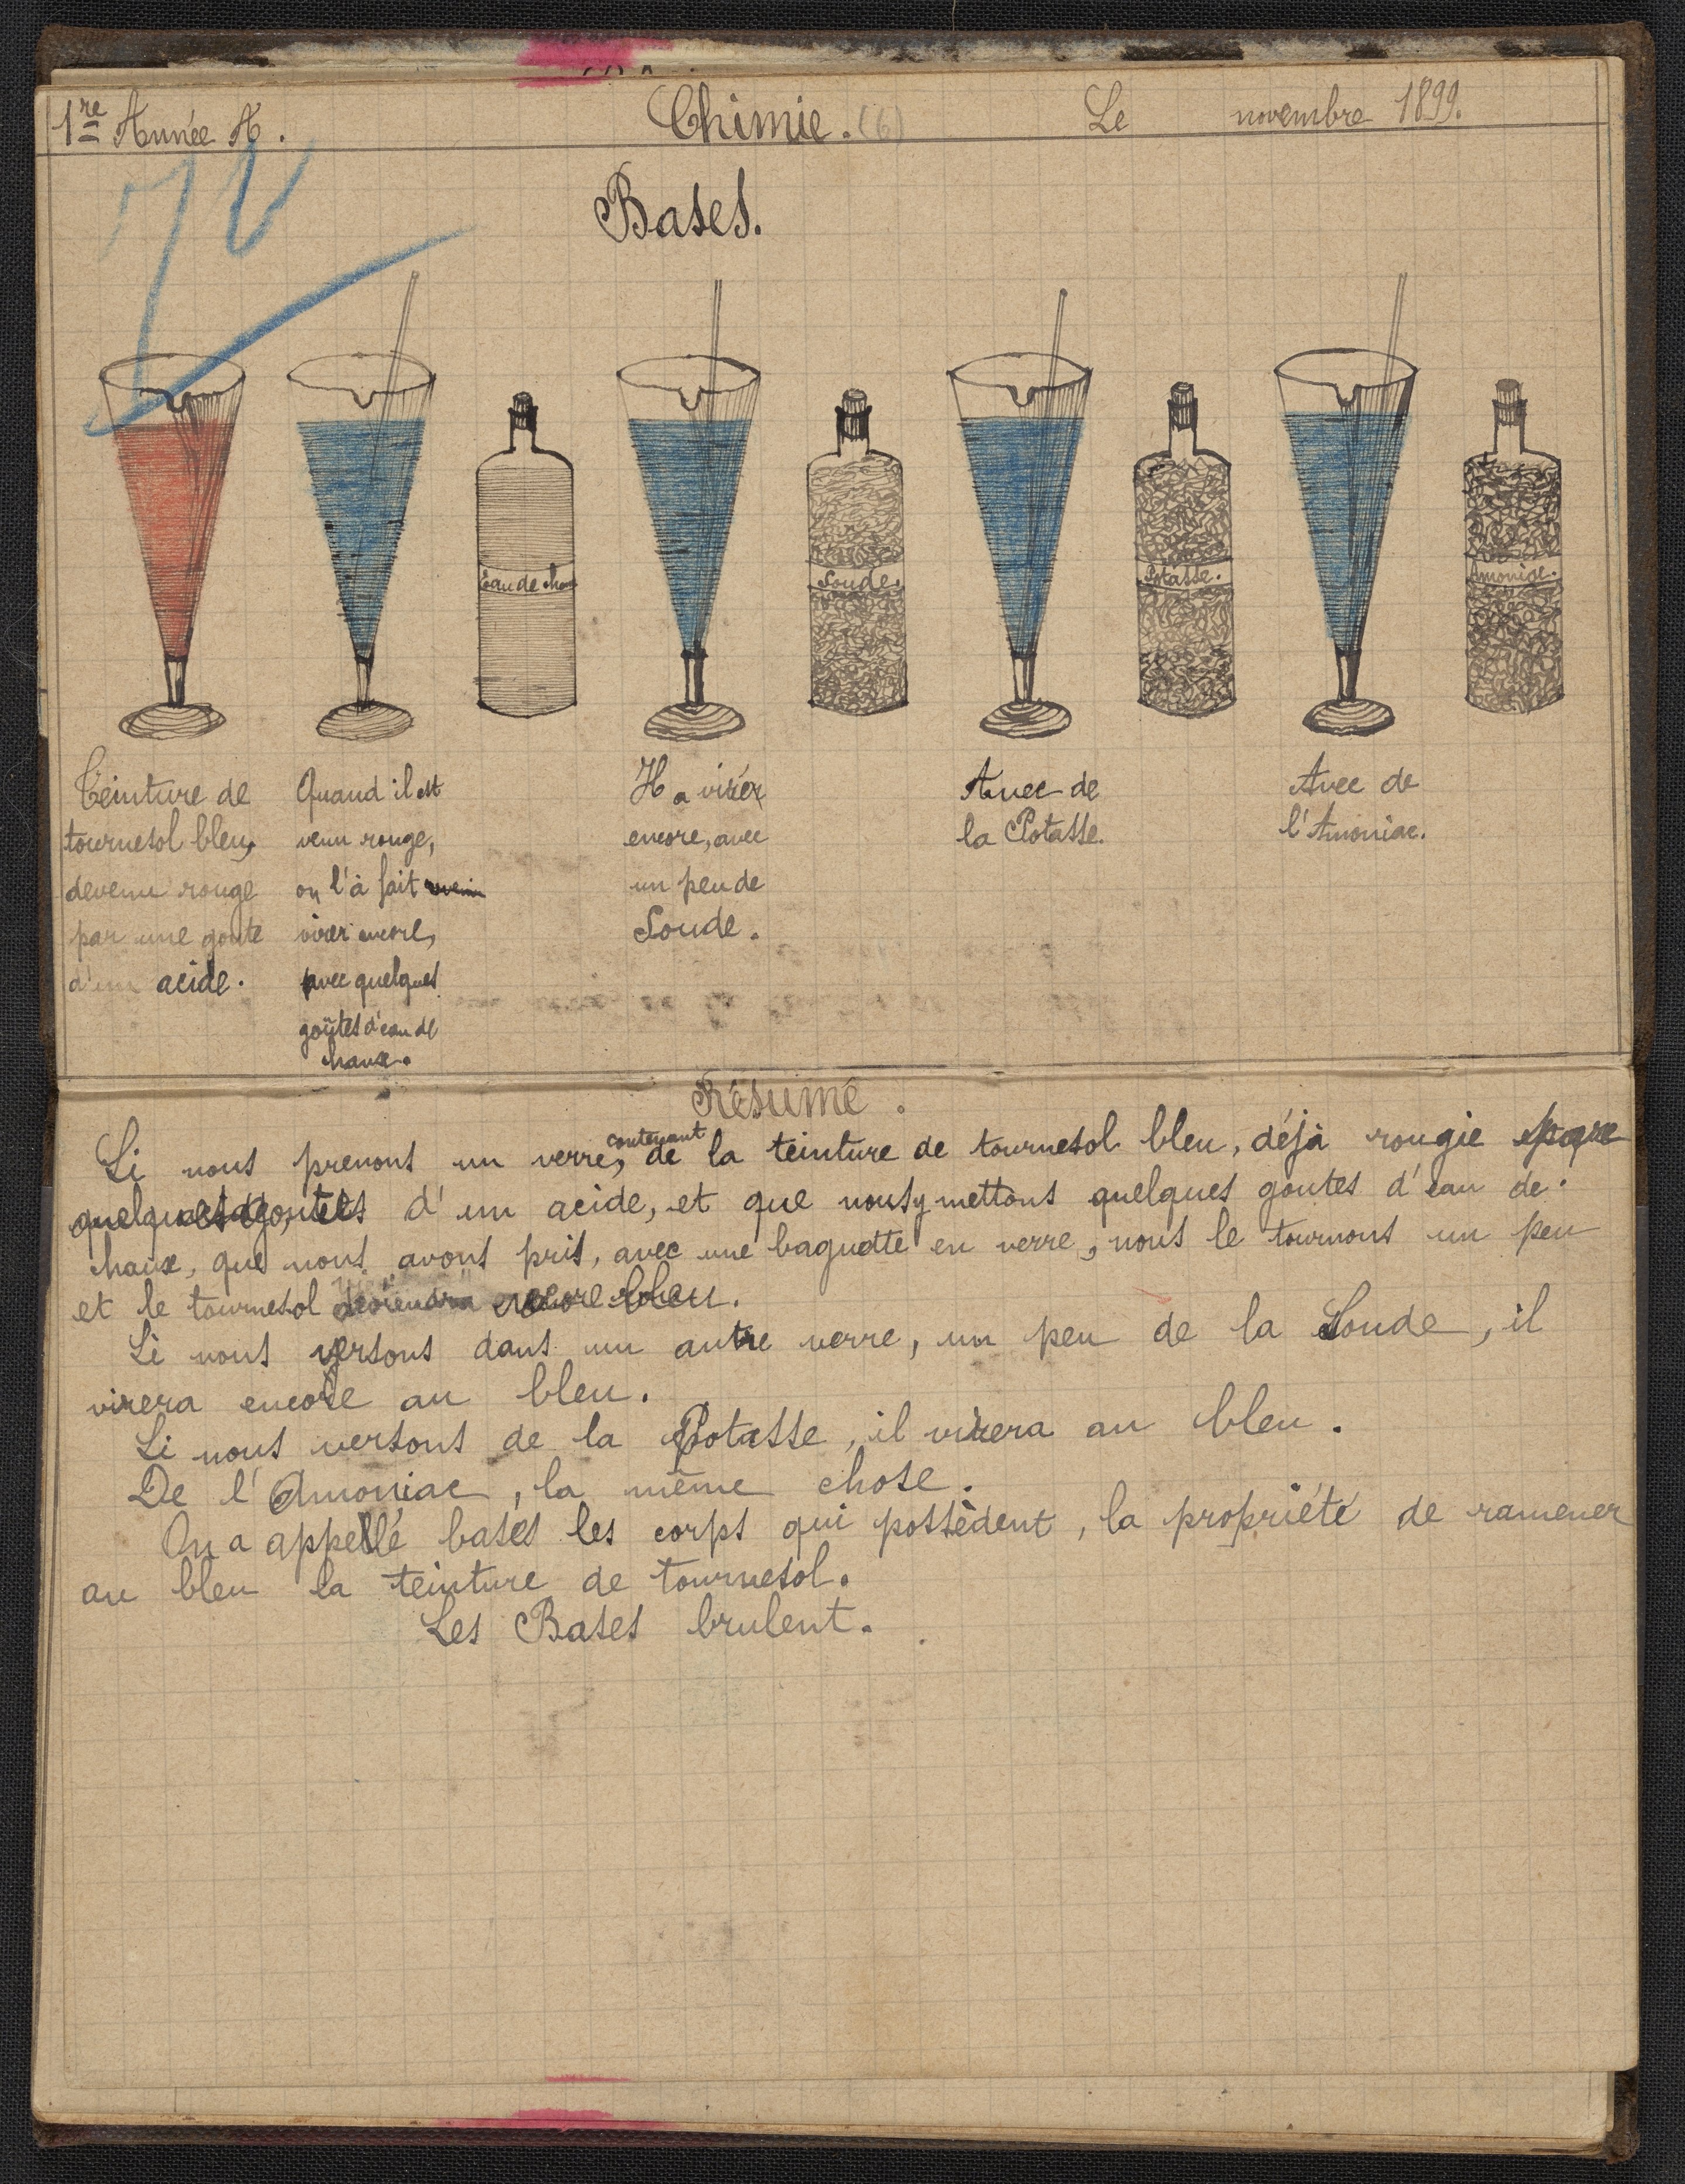 1re Année A.
Chimie. (6)
Le novembre 1899.
Bases.
Eau de chaux
Soude.
Potasse.
Amoniac.
Teinture de
tournesol bleu,
devenu rouge
par une goute
d'un acide.
Quand il est
venu rouge,
on l'à fait
virer encore,
avec quelques
goûtes d'eau de
chaux.
Il a virer
encore, avec
un peu de
Soude.
Avec de
la Potasse.
Avec de
l'Amoniac.
Résumé.
Si nous prenons un verre, contenant de la teinture de tournesol bleu, déjà rougie par
quelques goutes d'un acide, et que nous y mettons quelques goutes d'eau de
chaux, que nous avons pris, avec une baguette en verre, nous le tournons un peu
et le tournesol deviendra encore bleu.
Si nous versons dans un autre verre, un peu de la Soude, il
virera encore au bleu.
Si nous versons de la Potasse, il virera au bleu.
De l'Amoniac, la même chose.
On a appellé bases les corps qui possèdent, la propriété de ramener
au bleu la teinture de tournesol.
Les Bases brulent.